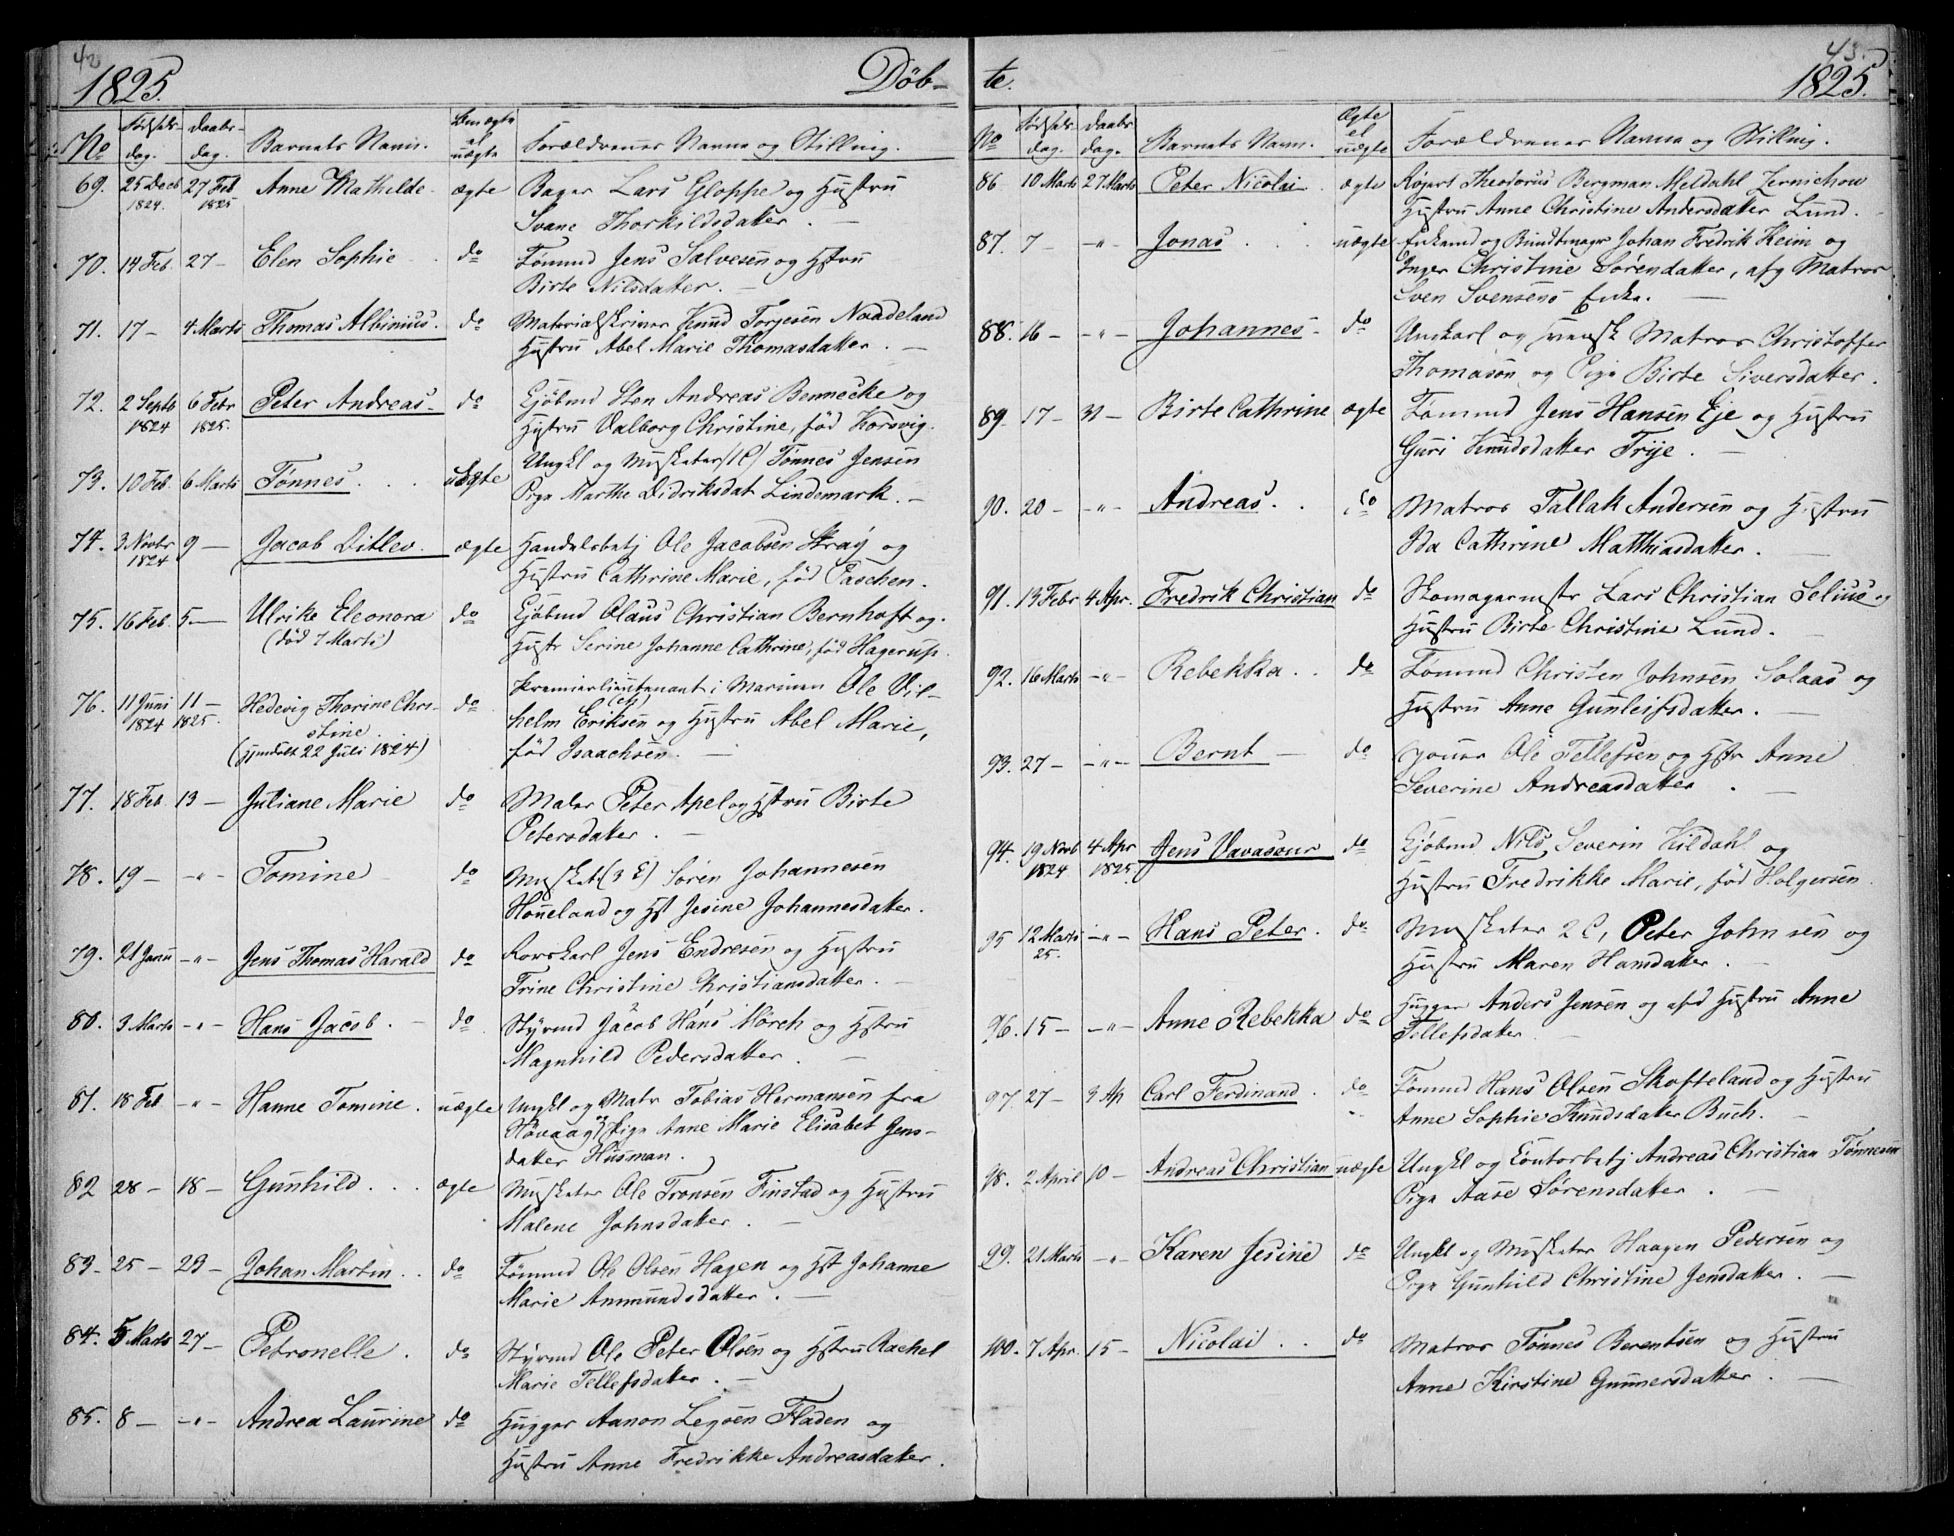 42
1825. Döb-
No Födsels-dag. Daabs-dag. Barnets Navn. Om ægte el uægte Forældrenes Navne og Stilling.
69. 25 Decb 1824. 27 Feb 1825 Anne Mathilde ægte Bager Lars Gloppe og Hustru
Svane Thorkildsdatter.
70. 14 Feb. 27 – Elen Sophie do Tömmd Jens Salvesen og Hstru
Birte Nilsdatter. –
71. 17 – 4 Marts Thomas Albinius. do Materialskriver Knud Torjesen Naadeland
Hustru Abel Marie Thomasdatter. –
72. 2 Septb 1824 6 Febr 1825. Peter Andreas. do Kjöbmd Sten Andreas Bennecke og
Hustru Valborg Christine, föd Korsvig.
73. 10 Feb. 6 Marts Tönnes . . uægte Ungkl og Musketer Tönnes Jensen
Pige Marthe Didriksdat Lindemark. –
74. 3 Novbr 1824 9 – Jacob Ditlev. ægte Handelsbetj Ole Jacobsen Skray og
Hustru Cathrine Marie, föd Paschen.
75. 16 Feb. 5 – Ulrike Eleonora do Kjöbmd Olaus Christian Bernhoft og
(död 7 Marts) Hustr Serine Johanne Cathrine, föd Hagerup.
76. 11 Juni 1824 11 – 1825. Hedevig Thorine Chri- do Premierlieutenant i Marinen Ole Vil-
stine. helm Eriksen (ch) og Hustru Abel Marie,
(hjemdöbt 22 Juli 1824) föd Isaachsen. –
77. 18 Feb 13 – Juliane Marie do Maler Peter Apel og Hstru Birte
Petersdatter. –
78. 19 – – " – Tomine do Musket (3 C) Sören Johannesen
Höueland og Hst Jesine Johannesdatter.
79. 21 Janu – " – Jens Thomas Harald do Rorskarl Jens Endresen og Hustru
Trine Christine Christiansdatter. –
80. 3 Marts – " – Hans Jacob. – do Styrmd Jacob Hans Mörch og Hstru
Magnhild Pedersdatter. –
81. 18 Feb – " – Hanne Tomine. uægte Ungkl og Matr Tobias Hermansen fra
Hövaag og Pige Anne Marie Elisabet Jens-
datter Husman.
82 28 – 18 – Gunhild . . . ægte Musketer Ole Tronsen Finstad og Hustru
Malene Johnsdatter. –
83 – 25 – 23 – Johan Martin . . do Tömmd Ole Olsen Hagen og Hst Johanne
Marie Anmundsdatter. –
84. 5 Marts 27 – Petronelle. do Styrmd Ole Peter Olsen og Hstru Rachel
Marie Tellefsdatter. –
85. 8 – – " – Andrea Laurine do Hugger Aanon Legsen Fladen og
Hustru Anne Fredrikke Andreasdatter.
43.
te. 1825.
No Födsels-dag. Daabs-dag. Barnets Navn. Ægte el uægte Forældrenes Navne og Stilling.
86 10 Marts 27 Marts Peter Nicolai . ægte Theodorus Bergman Meldahl
Hustru Anne Christine Andersdatter Lund. –
87. 7 – – " – Jonas . . . uægte Enkemd og Bundtmager Johan Fredrik Heim og
Inger Christine Sörensdatter, afg Matros
Sven Svensens Enke. –
88. 16 – – " – Johannes – do Ungkarl og svensk Matros Christoffer
Thomason og Pige Birte Siversdatter.
89. 17 – 31 – Birte Cathrine ægte Tömmd Jens Hansen Eje og Hustru
Guri Knudsdatter Trije. –
90. 20 – – " – Andreas. . do Matros Tallak Andersen og Hustru
Ida Cathrine Matthiasdatter. –
91. 13 Febr 4 Apr. Fredrik Christian do Skomagermstr Lars Christian Selius og
Hustru Birte Christine Lund. –
92. 16 Marts – " – Rebekka. . do Tömmd Christen Johnsen Solaas og
Hustru Anne Gunleifsdatter. –
93. 27 – – " – Bernt – do Ole Tellefsen og Hstr Anne
Severine Andreasdatter . –
94. 19 Novb 1824 4 Apr 1825. Jens Vavasour do Kjöbmd Nils Severin Kildahl og
Hustru Fredrikke Marie, föd Holgersen
95 12 Marts 25. – " – Hans Peter. do Musketer 2 C, Peter Johnsen og
Hustru Maren Hansdatter. –
96. 15 – – " – Anne Rebekka do Hugger Anders Jensen og afd Hustru Anne
Tellefsdatter
97. 27 – 9 Ap Carl Ferdinand . do Tömmd Hans Olsen Skofteland og Hustru
Anne Sophie Knudsdatter Buch. –
98. 2 April 10 – Andreas Christian uægte Ungkl og Contorbetj Andreas Christian Tönnesen
Pige Aase Sörensdatter . –
99. 21 Marts – " – Karen Jesine do Ungkl og Musketer Haagen Pedersen og
Pige Gunhild Christine Jensdatter. –
100. 7 Apr. 15 – Nicolai . . do Matros Tönnes Berentsen og Hustru
Anne Kirstine Gunnersdatter. –